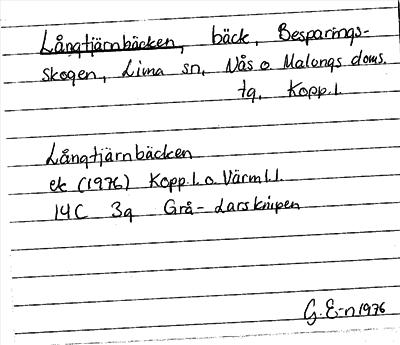 Långtjärnbäcken, bäck, Besparings-
skogen, Lima sn, Nås o Malungs doms.
tg, Kopp.l.
Långtjärnbäcken
ek (1976) Kopp.l. o. Värml.l.
14C 3g Grå-Larsknipen
G.E-n 1976